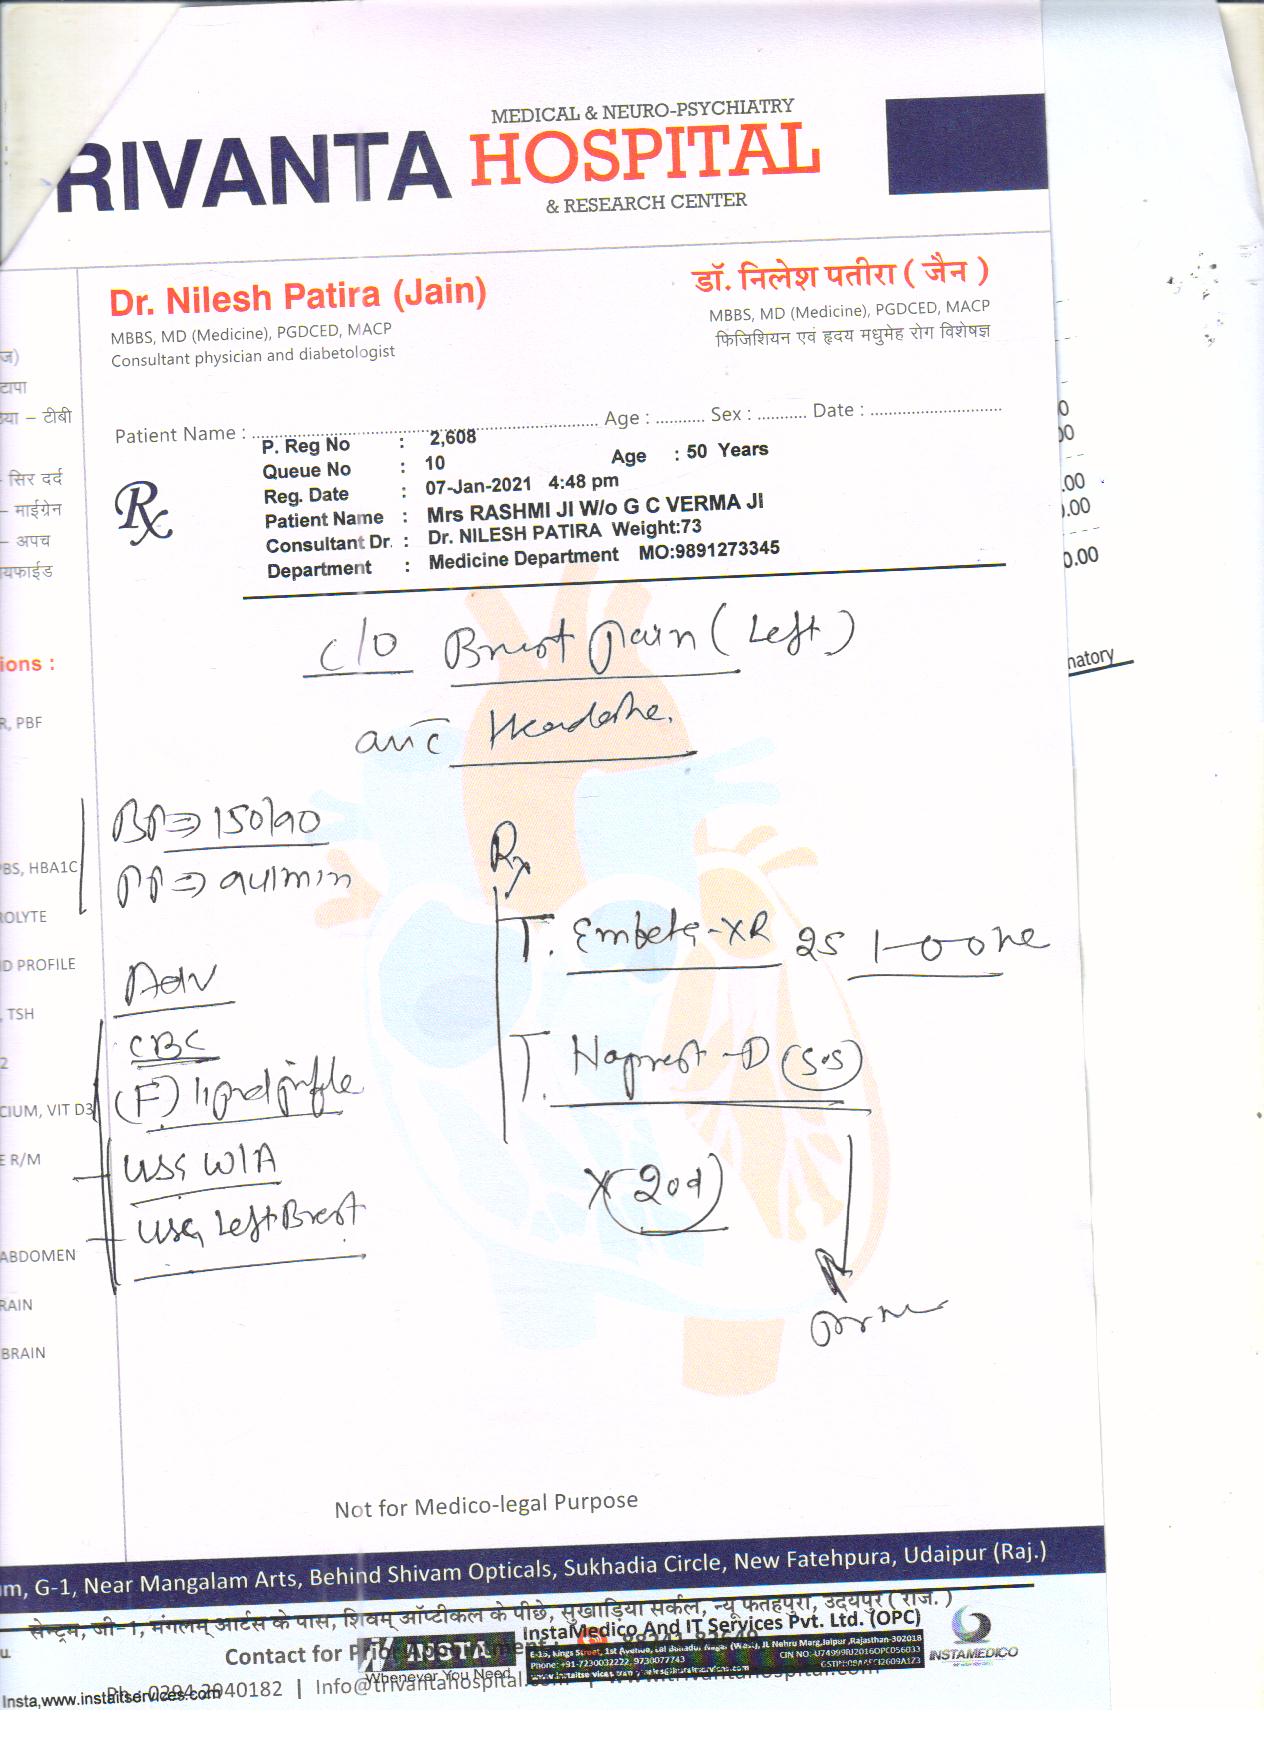 MEDICAL & NEURO-PSYCHIATRY
RIVANTA HOSPITAL
& RESEARCH CENTER
Dr. Nilesh Patira (Jain)
MBBS, MD (Medicine), PGDCED, MACP
Consultant physician and diabetologist
डॉ. निलेश पतीरा ( जैन )
MBBS, MD (Medicine), PGDCED, MACP
फिजिशियन एवं हृदय मधुमेह रोग विशेषज्ञ
ज)
टापा
या – टीबी
- सिर दर्द
– माईग्रेन
– अपच
यफाईड
Patient Name : ........ Age : ........... Sex : ........... Date : ...........
Rx
P. Reg No : 2,608
Queue No : 10 Age : 50 Years
Reg. Date : 07-Jan-2021 4:48 pm
Patient Name : Mrs RASHMI JI W/o G C VERMA JI
Consultant Dr. : Dr. NILESH PATIRA Weight:73
Department : Medicine Department MO:9891273345
0
00
.00
0.00
0.00
natory
ions :
R, PBF
PBS, HBA1C
ROLYTE
ID PROFILE
, TSH
2
CIUM, VIT D3
E R/M
ABDOMEN
RAIN
BRAIN
C/O Brest pain (Left)
Headache.
BP⇒150/90
PP⇒94/min
Adv
CBC
(F) lipid profile
USG W/A
USG Left Brest
Rx
T. Embeta-XR 25 1-0-0
T. Naprest-D (SOS)
X 20d
Not for Medico-legal Purpose
m, G-1, Near Mangalam Arts, Behind Shivam Opticals, Sukhadia Circle, New Fatehpura, Udaipur (Raj.)
सेन्ट्रम, जी-1, मंगलम् आर्टस के पास, शिवम् ऑप्टीकल के पीछे, सुखाड़िया सर्कल, न्यू फतहपुरा, उदयपुर ( राज. )
InstaMedico And IT Services Pvt. Ltd. (OPC)
E-15, Kings Street, 1st Avenue, Lal Bahadur Nagar (West), JL Nehru Marg, Jaipur, Rajasthan-302018
Phone: +91-7230032222, 9730077743
CIN NO:-U74999RJ2016OPC056033
INSTAMEDICO
Contact for Prior Appointment :
Whenever You Need
Ph.: 0294 2940182 | Info@trivantahospital.com
Insta,www.instaitservices.com